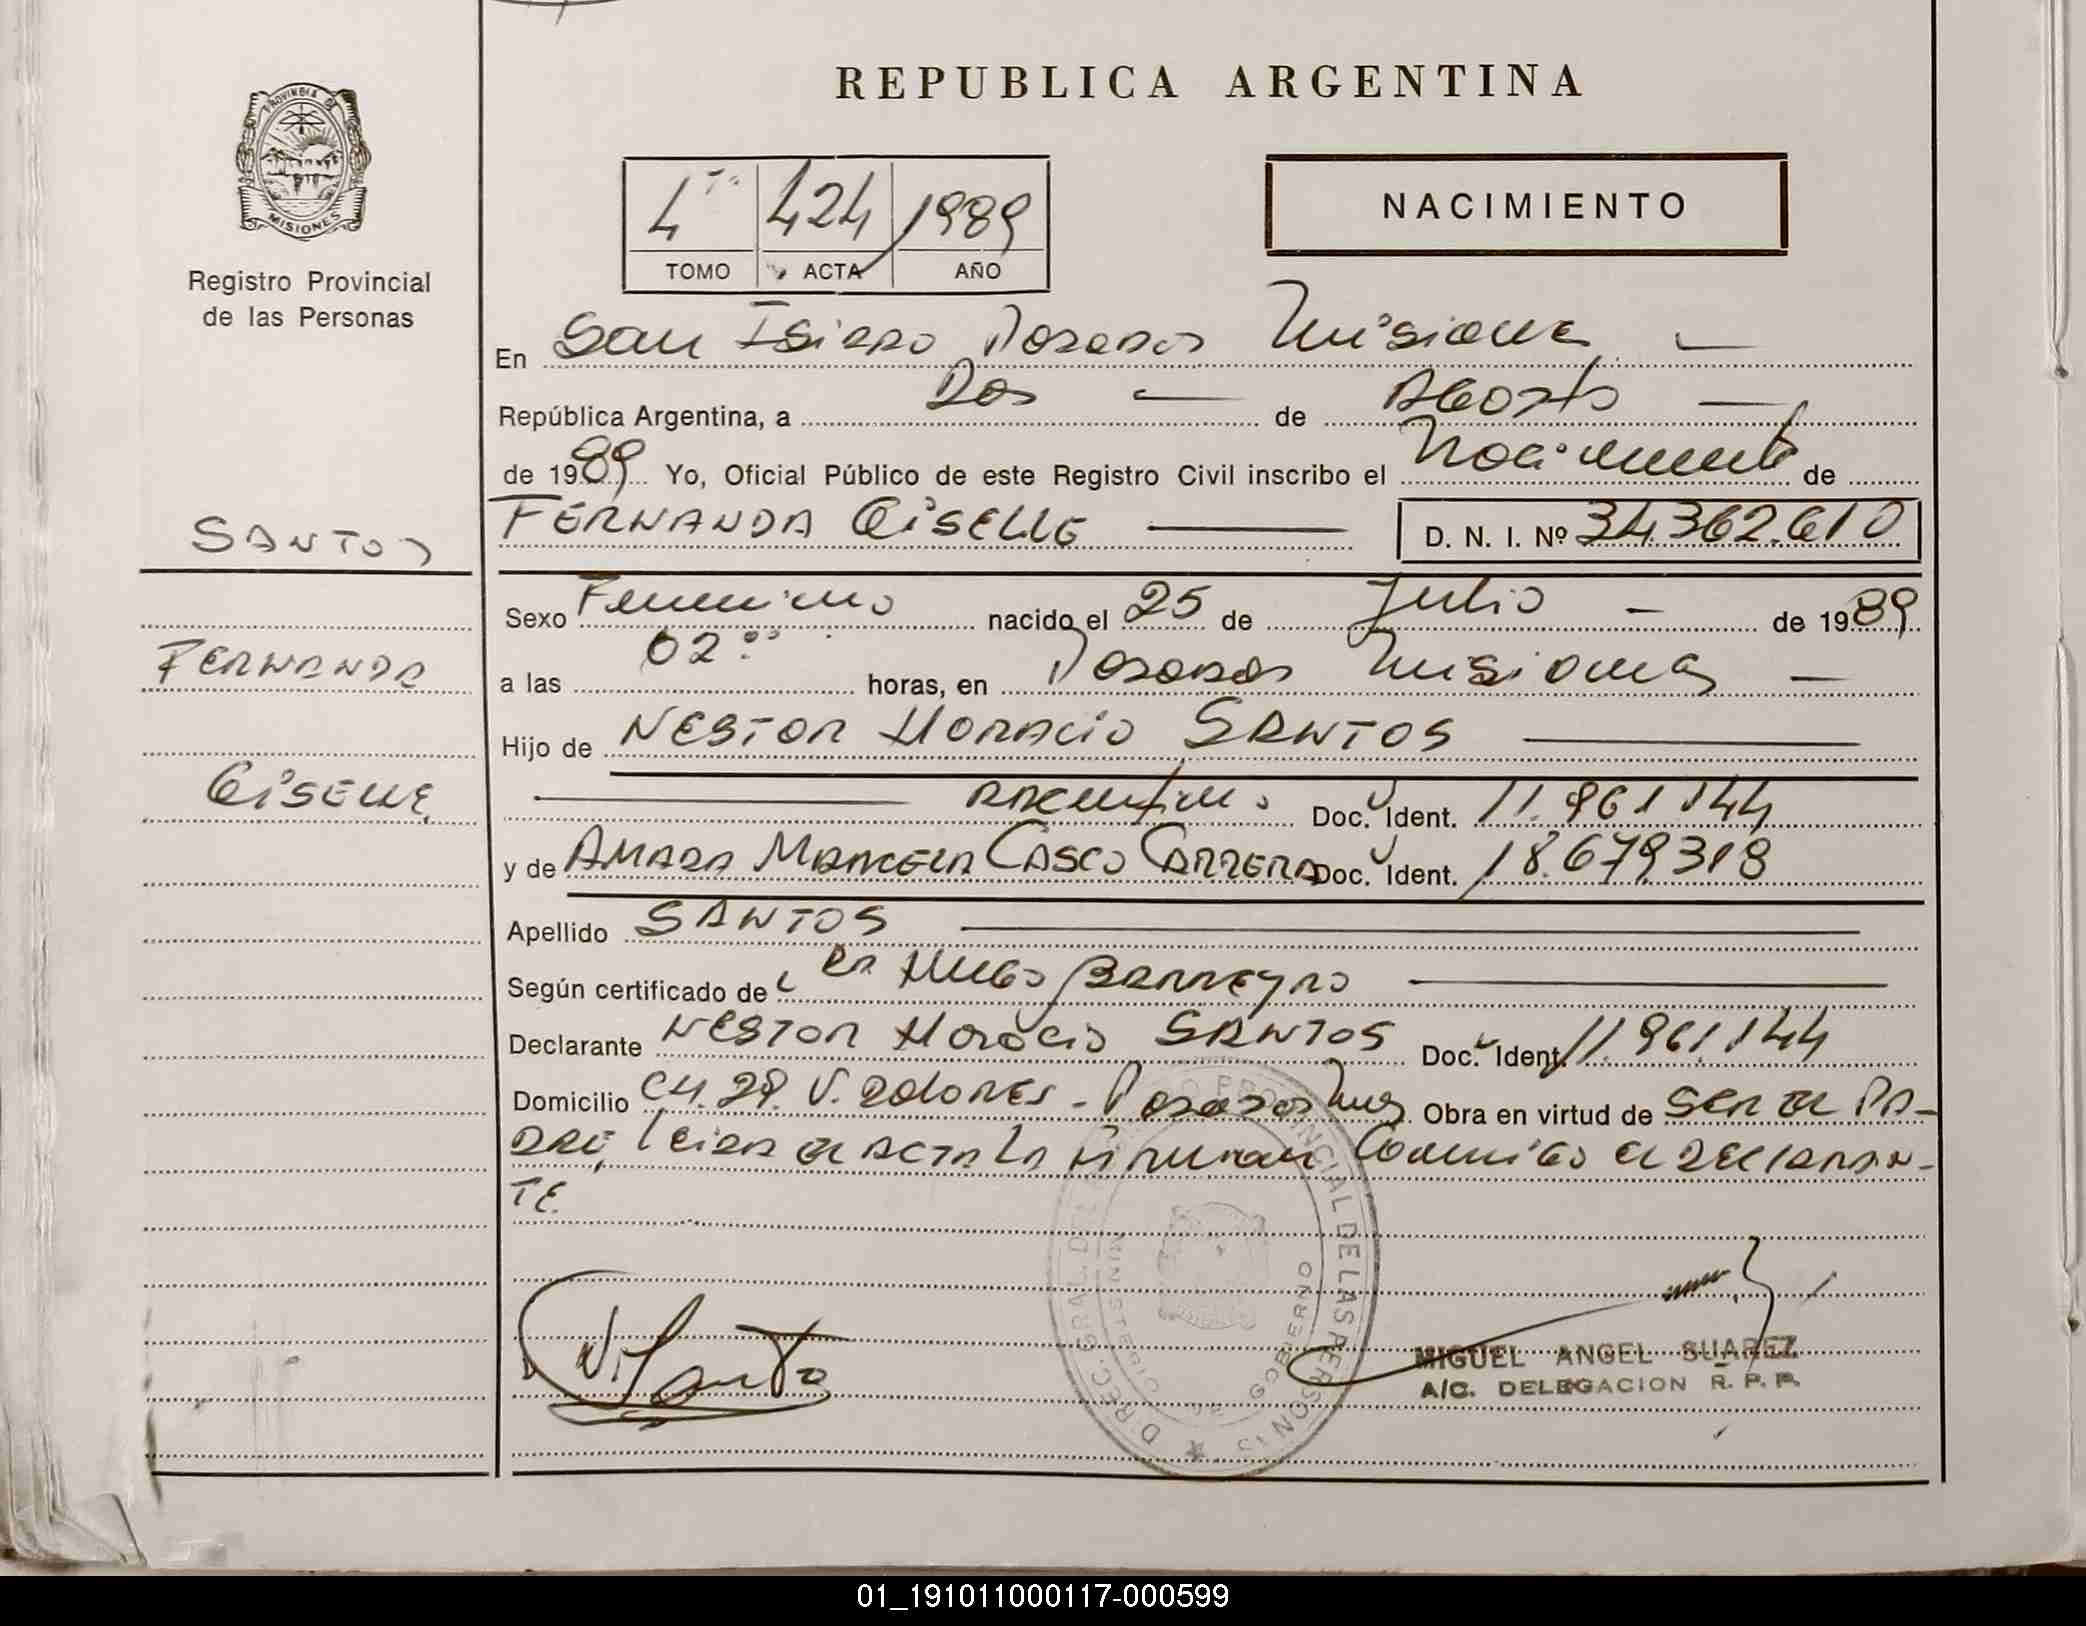 REPUBLICA ARGENTINA
PROVINCIA DE MISIONES
Registro Provincial
de las Personas
4to 424 1989
TOMO ACTA AÑO
NACIMIENTO
En San Isidro Posadas Misiones
República Argentina, a Dos de Agosto
de 1989 Yo, Oficial Público de este Registro Civil inscribo el Nacimiento de
SANTOS
FERNANDA GISELLE D. N. I. Nº 34.362.610
Sexo Femenino nacido el 25 de Julio de 1989
FERNANDA
a las 02 horas, en Posadas Misiones
Hijo de NESTOR HORACIO SANTOS
GISELLE
Argentino Doc. Ident. 11.961.144
y de AMADA MARCELA CASCO CARRERA Doc. Ident. 18.679.318
Apellido SANTOS
Según certificado de HUGO BARREYRO
Declarante NESTOR Horacio SANTOS Doc. Ident. 11.961.144
Domicilio CH. 28. V. DOLORES - Posadas Mnes Obra en virtud de SER EL PA-
DRE, LEIDA EL ACTA LA FIRMAN Conmigo EL DECLARAN-
TE.
DIREC. GRAL. DEL REGISTRO PROVINCIAL DE LAS PERSONAS
MINISTERIO DE GOBIERNO
N. Santos
MIGUEL ANGEL SUAREZ
A/C. DELEGACION R. P. P.
01_191011000117-000599